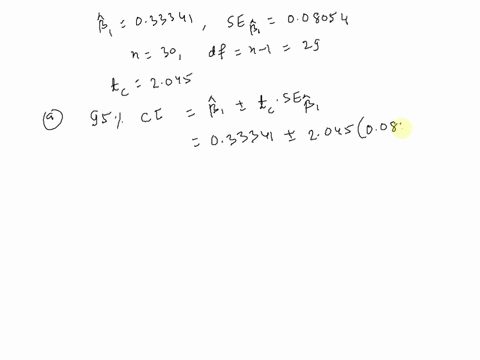 β̂₁ = 0.33341 , SE_β̂₁ = 0.08054
n = 30, df = n-1 = 29
t_c = 2.045
(a) 95% CI = β̂₁ ± t_c · SE_β̂₁
= 0.33341 ± 2.045 (0.08